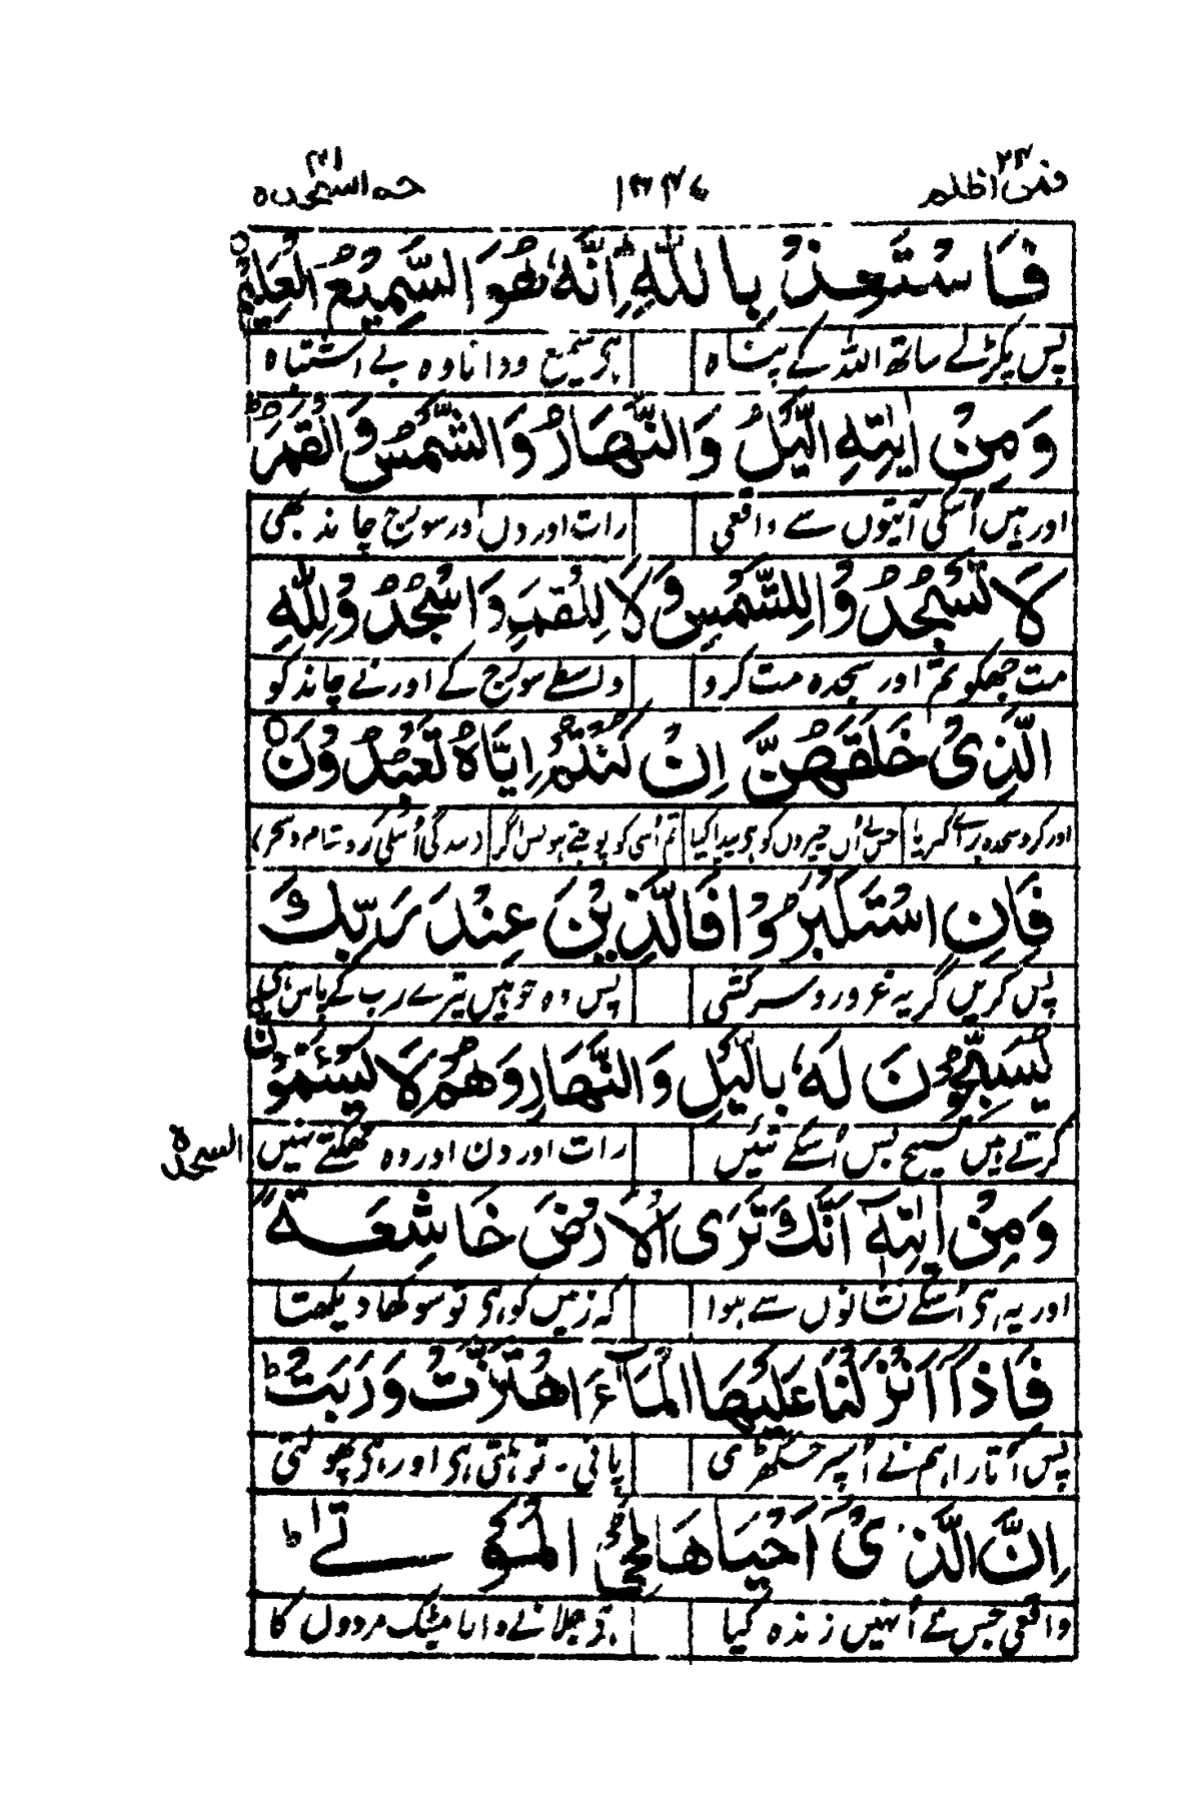 فمن اظلم ۲۴
۱۳۴۷
حٰم السجدہ ۴۱
فَاسْتَعِذْ بِاللّٰهِ ؕ اِنَّهٗ هُوَ السَّمِيْعُ الْعَلِيْمُ ○
پس پکڑ لے ساتھ اللہ کے پناہ
ہے سمیع و دانا وہ بے اشتباہ
وَمِنْ اٰيٰتِهِ الَّيْلُ وَالنَّهَارُ وَالشَّمْسُ وَالْقَمَرُ ؕ
اور ہیں اُسکی آیتوں سے واقعی
رات اور دن اور سورج چاند بھی
لَا تَسْجُدُوْا لِلشَّمْسِ وَلَا لِلْقَمَرِ وَاسْجُدُوْا لِلّٰهِ
مت جھکو تم اور سجدہ مت کرو
واسطے سورج کے اور نے چاند کو
الَّذِىْ خَلَقَهُنَّ اِنْ كُنْتُمْ اِيَّاهُ تَعْبُدُوْنَ ○
اور کرو سجدہ برائے کبریا
جس نے اُن چیزوں کو ہے پیدا کیا
تم اُسی کو پوجتے ہو بس اگر
(بندگی اُسکی کرو شام و سحر)
فَاِنِ اسْتَكْبَرُوْا فَالَّذِيْنَ عِنْدَ رَبِّكَ
پس کریں گر یہ غرور و سرکشی
پس وہ جو ہیں تیرے رب کے پاس ہی
يُسَبِّحُوْنَ لَهٗ بِالَّيْلِ وَالنَّهَارِ وَهُمْ لَا يَسْئَمُوْنَ
کرتے ہیں تسبیح بس اُسکے تئیں
رات اور دن اور وہ تھکتے نہیں
السجدة
وَمِنْ اٰيٰتِهٖٓ اَنَّكَ تَرَى الْاَرْضَ خَاشِعَةً
اور یہ ہی اُسکے نشانوں سے ہوا
کہ زمیں کو ہی تو سوکھا دیکھتا
فَاِذَآ اَنْزَلْنَا عَلَيْهَا الْمَآءَ اهْتَزَّتْ وَرَبَتْ ؕ
پس اُتارا ہم نے اُسپر جس گھڑی
پانی ۔ تو ہلتی ہی اور ہی پھولتی
اِنَّ الَّذِىْٓ اَحْيَاهَا لَمُحْىِ الْمَوْتٰى ؕ
واقعی جس نے اُنہیں زندہ کیا
ہے جلانے والا بیشک مردوں کا